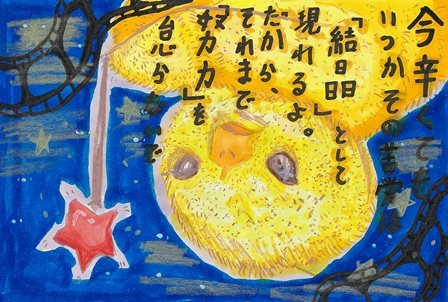 今辛くても
いつかその苦労は
「結晶」として
現れるよ。
だから、
それまで
「努力」を
怠らないで